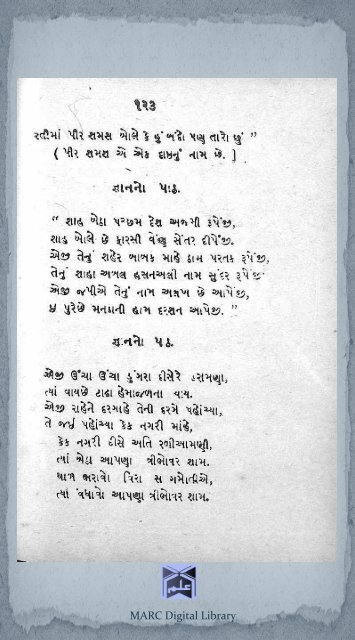 ૧૨૩
રતીમાં પીર શમસ બોલે કે હું બંદો પણ તારો છું ”
( પીર શમશ એ એક દાસનું નામ છે. ]
જ્ઞાનનો પાઠ.
“ શાહ બેઠા પચ્છમ દેશ અજમી રૂપેજી,
શાહ બોલે છે ફારસી વેણ સેંતર દીપેજી.
એજી તેનું શહેર બાબક માહે ઠામ પરતક રૂપેજી,
તેનું શાહા અબલ હસનઅલી નામ સુંદર રૂપેજી
એજી જપીએ તેનું નામ અલખ છે આપેજી,
પુરેછે મનડાની હામ દરશન આપેજી. ”
જ્ઞાનનો પાઠ.
એજી ઉંચા ઉંચા ડુંગરા દીસેરે હરામણા,
ત્યાં વાયછે ટાઢા હેમાજળના વાય.
એજી રાહેને દરગાહે તેની દરમે પહોંચ્યા,
તે જઈ પહોંચ્યા કેક નગરી માંહે,
કેક નગરી દીસે અતિ રળીઆમણી,
ત્યાં બેઠા આપણા ત્રીભોવર શામ.
થાળ ભરાવો વિરા સગમોતીએ,
ત્યાં વધાવો આપણા ત્રીભોવર શામ.
علم
MARC Digital Library